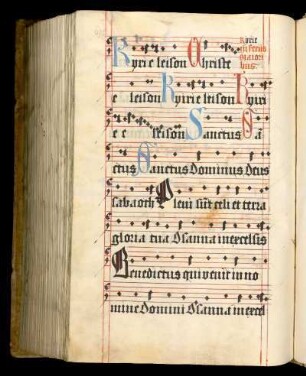 Kyrie leison Christe
e leison Kyrie leison Kyri
e eleison Sanctus Sā
ctus Sanctus Dominus deus
sabaoth Pleni sūt celi et terra
gloria tua Osanna in excelsis
Benedictus qui venit in no
mine Domini Osanna in excel